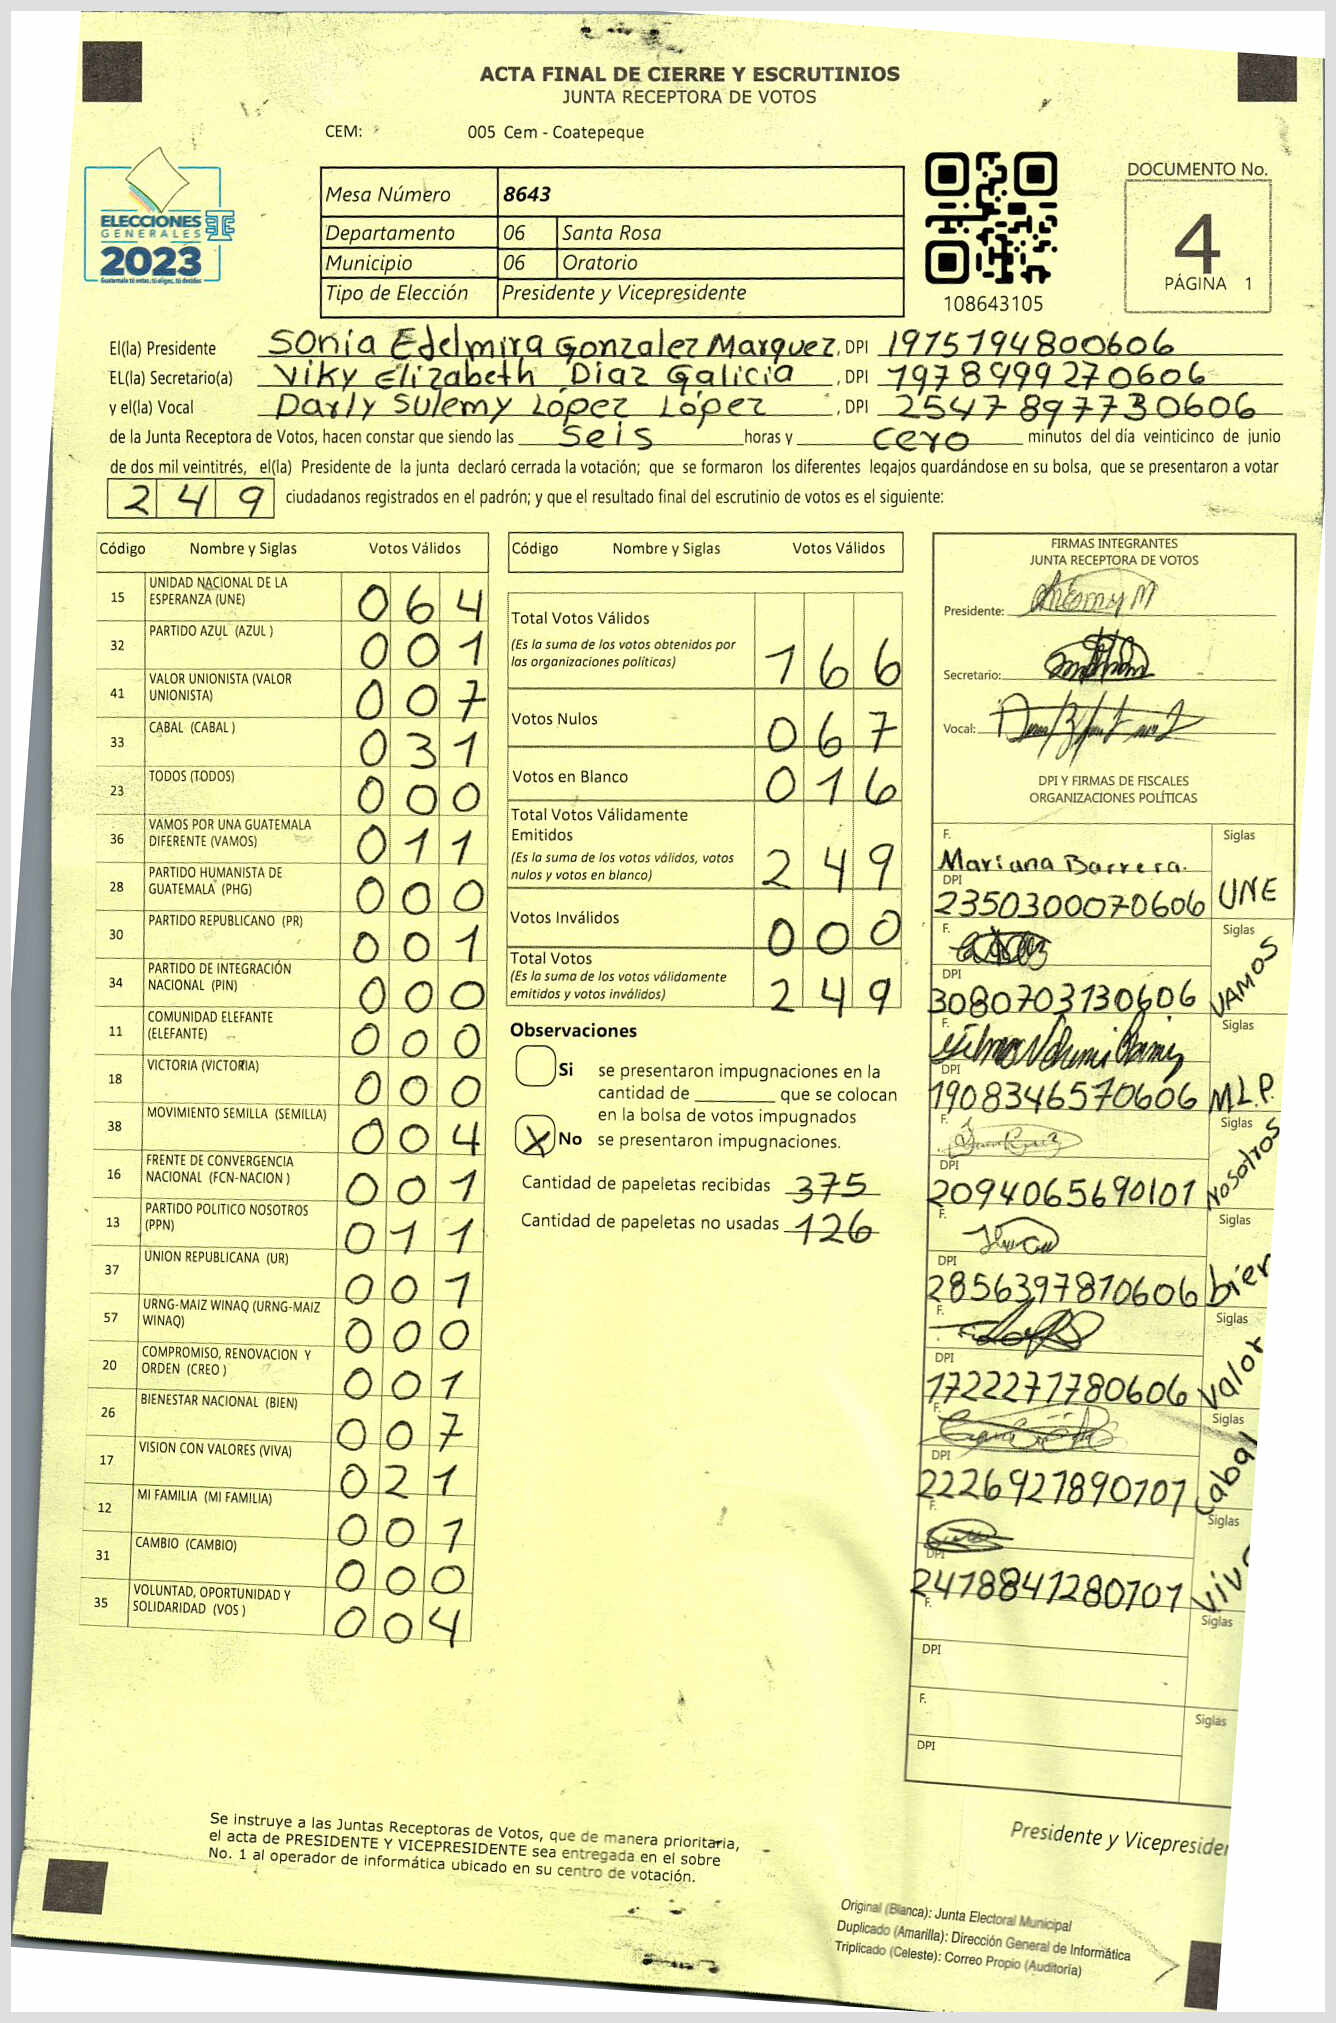 ACTA FINAL DE CIERRE Y ESCRUTINIOS
JUNTA RECEPTORA DE VOTOS
CEM: 005 Cem - Coatepeque
ELECCIONES
GENERALES
2023
Guatemala tú votas, tú eliges, tú decides
Mesa Número 8643
Departamento 06 Santa Rosa
Municipio 06 Oratorio
Tipo de Elección Presidente y Vicepresidente
108643105
DOCUMENTO No.
4
PÁGINA 1
El(la) Presidente Sonia Edelmira Gonzalez Marquez, DPI 1975794800606
EL(la) Secretario(a) Viky Elizabeth Diaz Galicia, DPI 1978999270606
y el(la) Vocal Darly Sulemy López López, DPI 2547897730606
de la Junta Receptora de Votos, hacen constar que siendo las Seis horas y cero minutos del día veinticinco de junio
de dos mil veintitrés, el(la) Presidente de la junta declaró cerrada la votación; que se formaron los diferentes legajos guardándose en su bolsa, que se presentaron a votar
249 ciudadanos registrados en el padrón; y que el resultado final del escrutinio de votos es el siguiente:
Código Nombre y Siglas Votos Válidos
15 UNIDAD NACIONAL DE LA ESPERANZA (UNE) 064
32 PARTIDO AZUL (AZUL ) 001
41 VALOR UNIONISTA (VALOR UNIONISTA) 007
33 CABAL (CABAL ) 031
23 TODOS (TODOS) 000
36 VAMOS POR UNA GUATEMALA DIFERENTE (VAMOS) 011
28 PARTIDO HUMANISTA DE GUATEMALA (PHG) 000
30 PARTIDO REPUBLICANO (PR) 001
34 PARTIDO DE INTEGRACIÓN NACIONAL (PIN) 000
11 COMUNIDAD ELEFANTE (ELEFANTE) 000
18 VICTORIA (VICTORIA) 000
38 MOVIMIENTO SEMILLA (SEMILLA) 004
16 FRENTE DE CONVERGENCIA NACIONAL (FCN-NACION ) 001
13 PARTIDO POLITICO NOSOTROS (PPN) 011
37 UNION REPUBLICANA (UR) 001
57 URNG-MAIZ WINAQ (URNG-MAIZ WINAQ) 000
20 COMPROMISO, RENOVACION Y ORDEN (CREO ) 001
26 BIENESTAR NACIONAL (BIEN) 007
17 VISION CON VALORES (VIVA) 021
12 MI FAMILIA (MI FAMILIA) 001
31 CAMBIO (CAMBIO) 000
35 VOLUNTAD, OPORTUNIDAD Y SOLIDARIDAD (VOS ) 004
Código Nombre y Siglas Votos Válidos
Total Votos Válidos
(Es la suma de los votos obtenidos por
las organizaciones políticas) 166
Votos Nulos 067
Votos en Blanco 016
Total Votos Válidamente
Emitidos
(Es la suma de los votos válidos, votos
nulos y votos en blanco) 249
Votos Inválidos 000
Total Votos
(Es la suma de los votos válidamente
emitidos y votos inválidos) 249
Observaciones
Si se presentaron impugnaciones en la
cantidad de ________ que se colocan
en la bolsa de votos impugnados
X No se presentaron impugnaciones.
Cantidad de papeletas recibidas 375
Cantidad de papeletas no usadas 126
FIRMAS INTEGRANTES
JUNTA RECEPTORA DE VOTOS
Presidente:
Secretario:
Vocal:
DPI Y FIRMAS DE FISCALES
ORGANIZACIONES POLÍTICAS
F. Mariana Barrera. Siglas
DPI 2350300070606 UNE
F. Siglas
DPI 3080703130606 VAMOS
F. Siglas
DPI 1908346570606 M.L.P.
F. Siglas
DPI 2094065690101 Nosotros
F. Siglas
DPI 2856397810606 bien
F. Siglas
DPI 1722271780606 valor
F. Siglas
DPI 2226927890101 Cabal
F. Siglas
DPI 2418841280101 viva
F. Siglas
DPI
F. Siglas
DPI
Se instruye a las Juntas Receptoras de Votos, que de manera prioritaria,
el acta de PRESIDENTE Y VICEPRESIDENTE sea entregada en el sobre
No. 1 al operador de informática ubicado en su centro de votación.
Presidente y Vicepresiden
Original (Blanca): Junta Electoral Municipal
Duplicado (Amarilla): Dirección General de Informática
Triplicado (Celeste): Correo Propio (Auditoría)